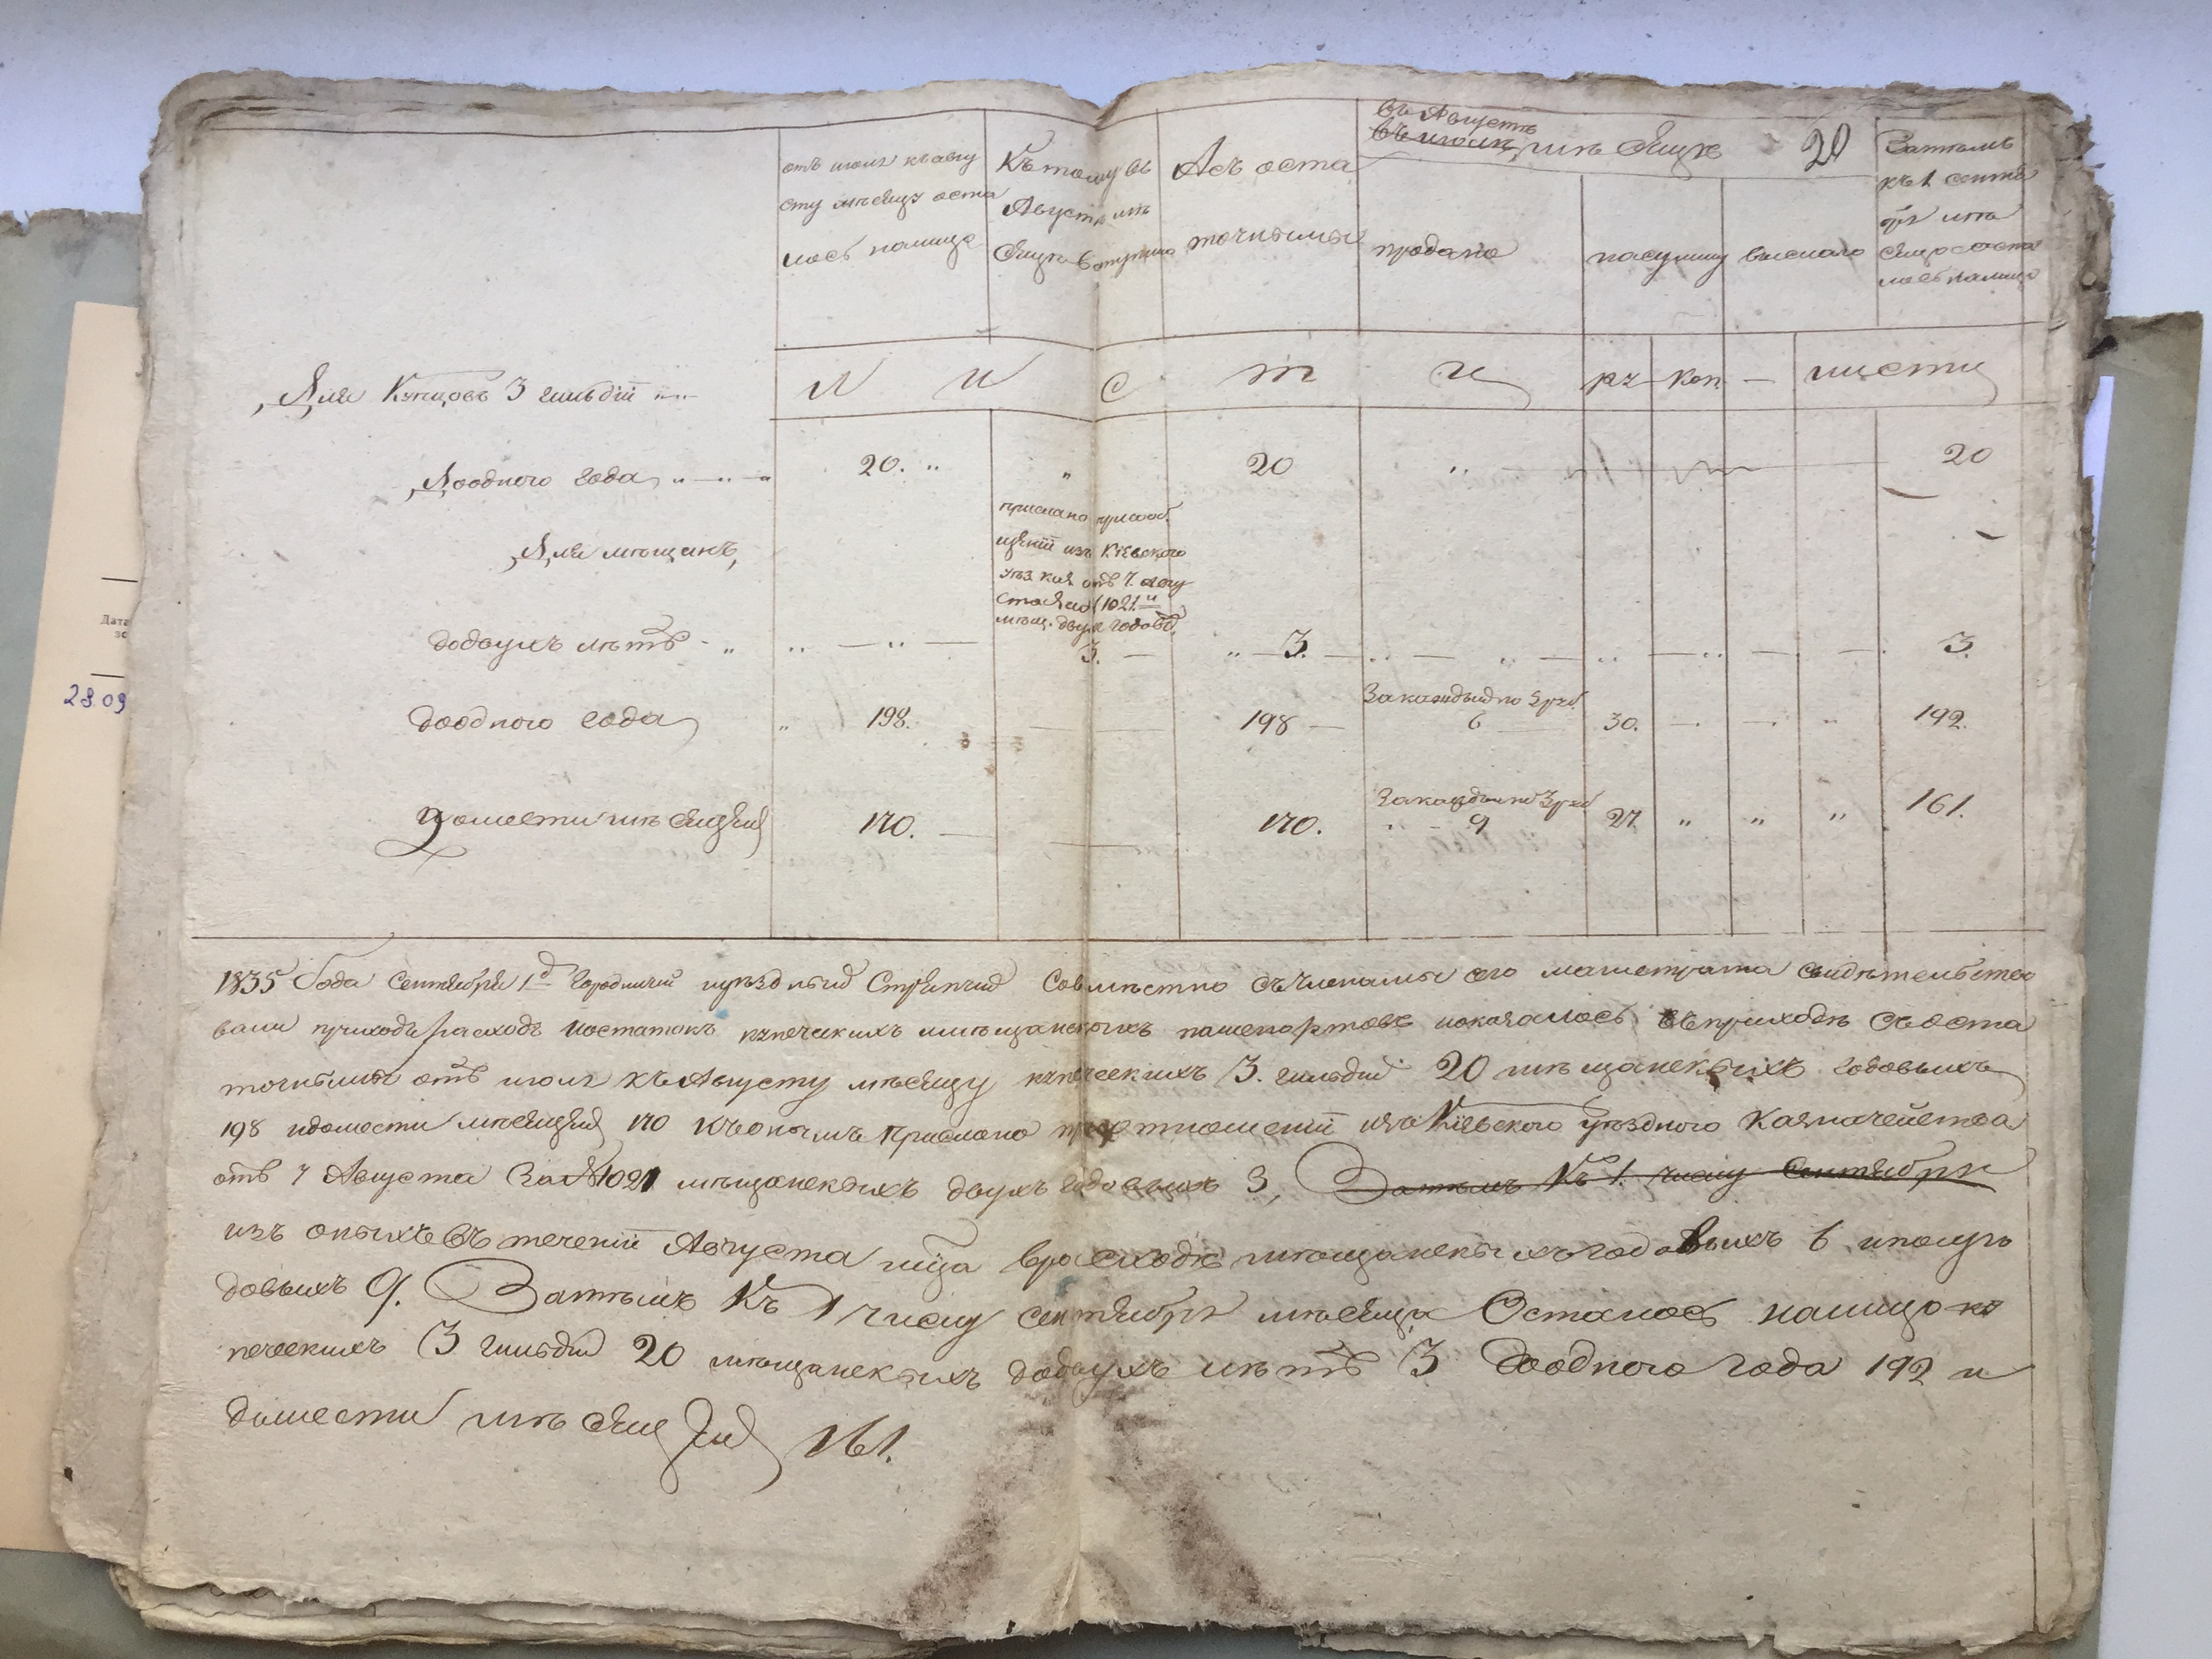 отъ июля къ авгу
сту мѣсяцу оста
лось налицо
Къ тому въ
Августѣ мѣ
сяцѣ вступило
Асъ оста
точными
въ Августѣ
въ июлѣ мѣсяцѣ
20
продано
на сумму
выслано
Затѣмъ
къ 1 сентя
бря мѣ
сяцо оста
лось налицо
Для Купцовъ 3 гильдіи
Л и с т и ру коп. — листы
До одного года 20. 20 20
Для мѣщанъ,
прислано при сооб.
щеніи изъ Кіевскаго
уѣз. каз. отъ 7. авгу
ста за № 1021.
мѣщ. двухъ годов.
до двухъ лѣтъ 3. 3. 3.
За каждый по 5 руб.
до одного года 198. 198 6 30. 192.
За каждый по 3 руб
до шести мѣсяцей 170. 170. 9 27 161.
1835 Года Сентября 1 д Городничій и уѣздный Стряпчій Совмѣстно съ Членами сего магистрата свидѣтельство
вали приходъ расходъ и остатокъ купеческихъ и мѣщанскихъ пашпортовъ и оказалось въ приходѣ съ оста
точными отъ июля къ Августу мѣсяцу купеческихъ 3. гильдіи 20 мѣщанскихъ годовыхъ
198 и до шести мѣсяцей 170 къ онымъ Прислано при отношеніи изъ Кіевского уѣздного Казначейства
отъ 7 Августа За № 1021 мѣщанскихъ двухъ годовыхъ 3, Затѣмъ Къ 1. числу Сентября
изъ оныхъ въ теченіи Августа мца въ расходѣ мѣщанскихъ годовыхъ 6 и полуго
довыхъ 9. Затѣмъ Къ 1 числу сентября мѣсяца Осталось налицо ку
печескихъ 3 гильдіи 20 мѣщанскихъ до двухъ лѣтъ 3 до одного года 192 и
до шести мѣсяцей 161.
Дата
28.09